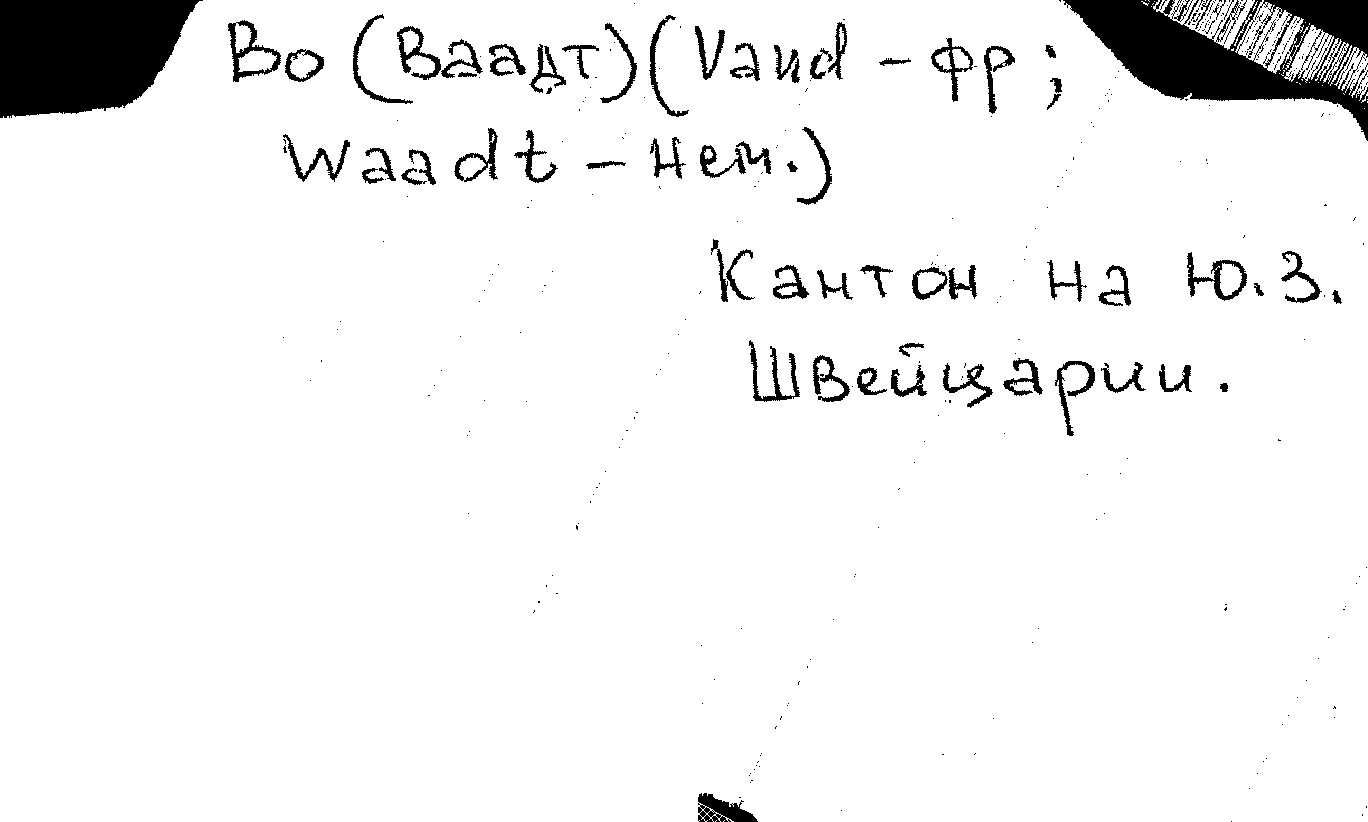 Во (Ваадт) (Vaud - фр;
Waadt - нем.)
Кантон на Ю.З.
Швейцарии.